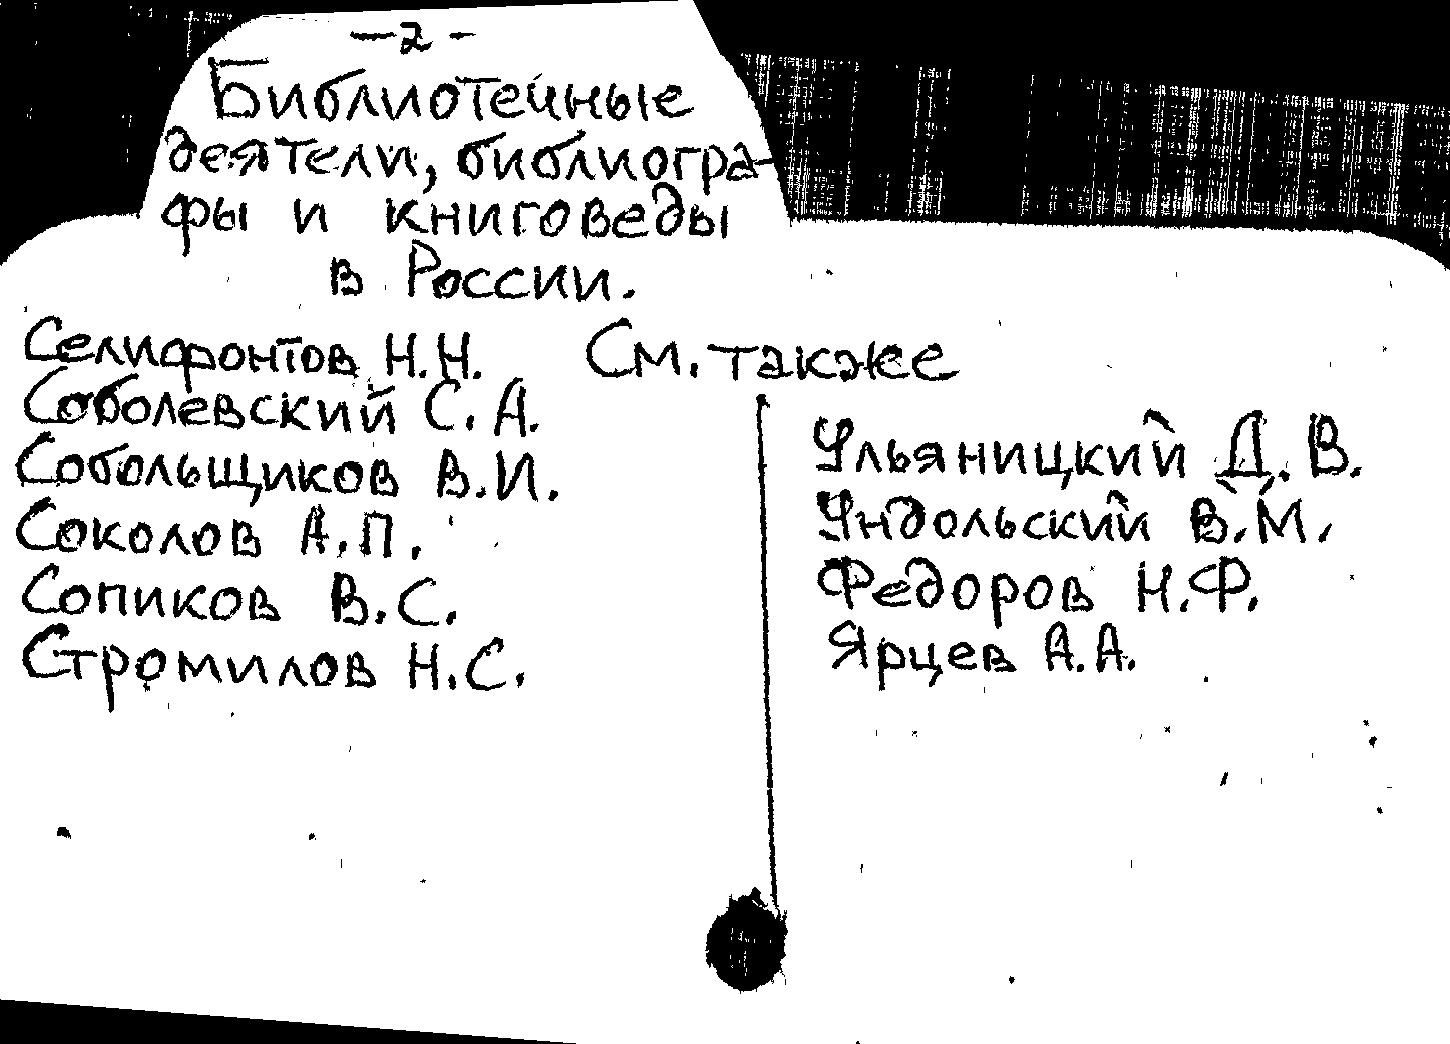 —2-
Библиотечные
деятели, библиогра-
фы и книговеды
в России.
См. также
Селифонтов Н.Н.
Соболевский С.А.
Собольщиков В.И.
Соколов А.П.
Сопиков В.С.
Стромилов Н.С.
Ульяницкий Д.В.
Ундольский В.М.
Федоров Н.Ф.
Ярцев А.А.